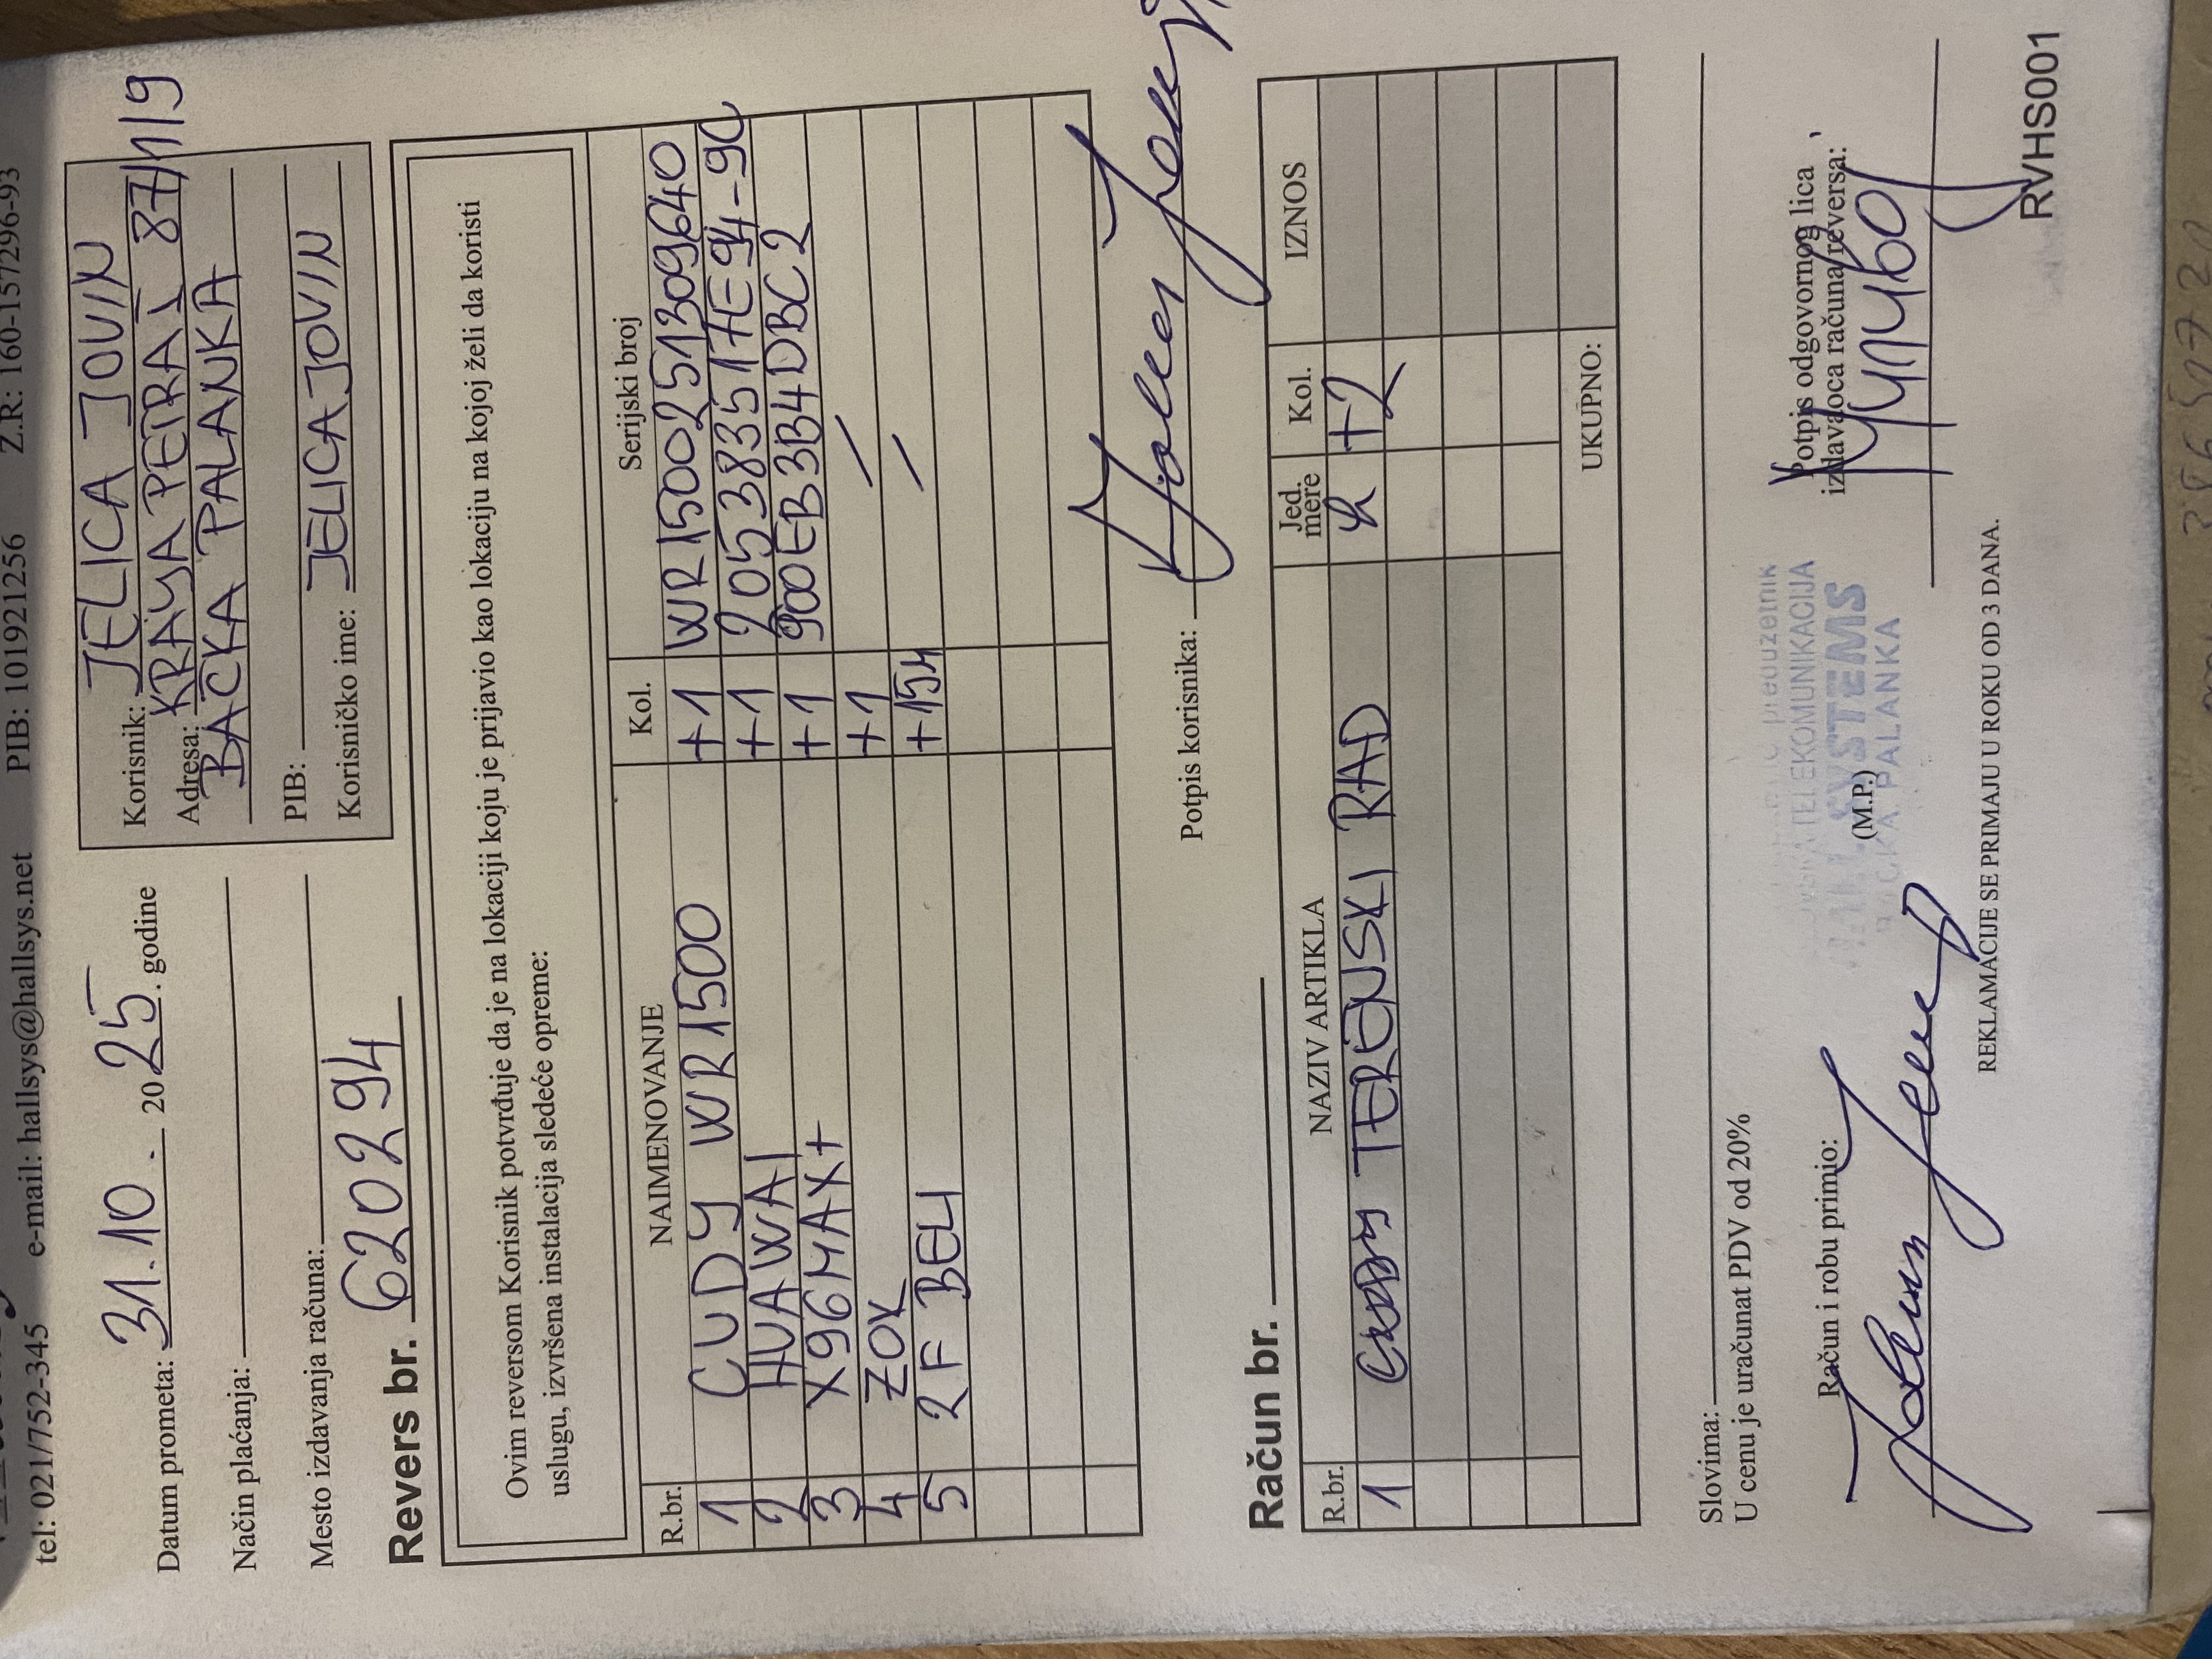 tel: 021/752-345 e-mail: hallsys@hallsys.net PIB: 101921256 Z.R: 160-157296-93
Datum prometa: 31.10. 2025. godine
Način plaćanja:
Mesto izdavanja računa:
Korisnik: JELICA JOVIN
Adresa: KRALJA PETRA I 87/1/9
BAČKA PALANKA
PIB:
Korisničko ime: JELICA JOVIN
Revers br. 620294
Ovim reversom Korisnik potvrđuje da je na lokaciji koju je prijavio kao lokaciju na kojoj želi da koristi
uslugu, izvršena instalacija sledeće opreme:
R.br. NAIMENOVANJE Kol. Serijski broj
1 CUDY WR1500 +1 WR1500251309640
2 HUAWAI +1 2053835
3 X96MAX+ +1 900EB3B4DBC2
4 ZOK +1 /
5 2F BELI +15M /
Potpis korisnika:
Račun br.
R.br. NAZIV ARTIKLA Jed. mere Kol. IZNOS
1 TERENSKI RAD h +2
UKUPNO:
Slovima:
U cenu je uračunat PDV od 20%
Račun i robu primio:
(M.P.)
TELEKOMUNIKACIJA
SYSTEMS
PALANKA
Potpis odgovornog lica
izdavaoca računa/reversa:
REKLAMACIJE SE PRIMAJU U ROKU OD 3 DANA.
RVHS001